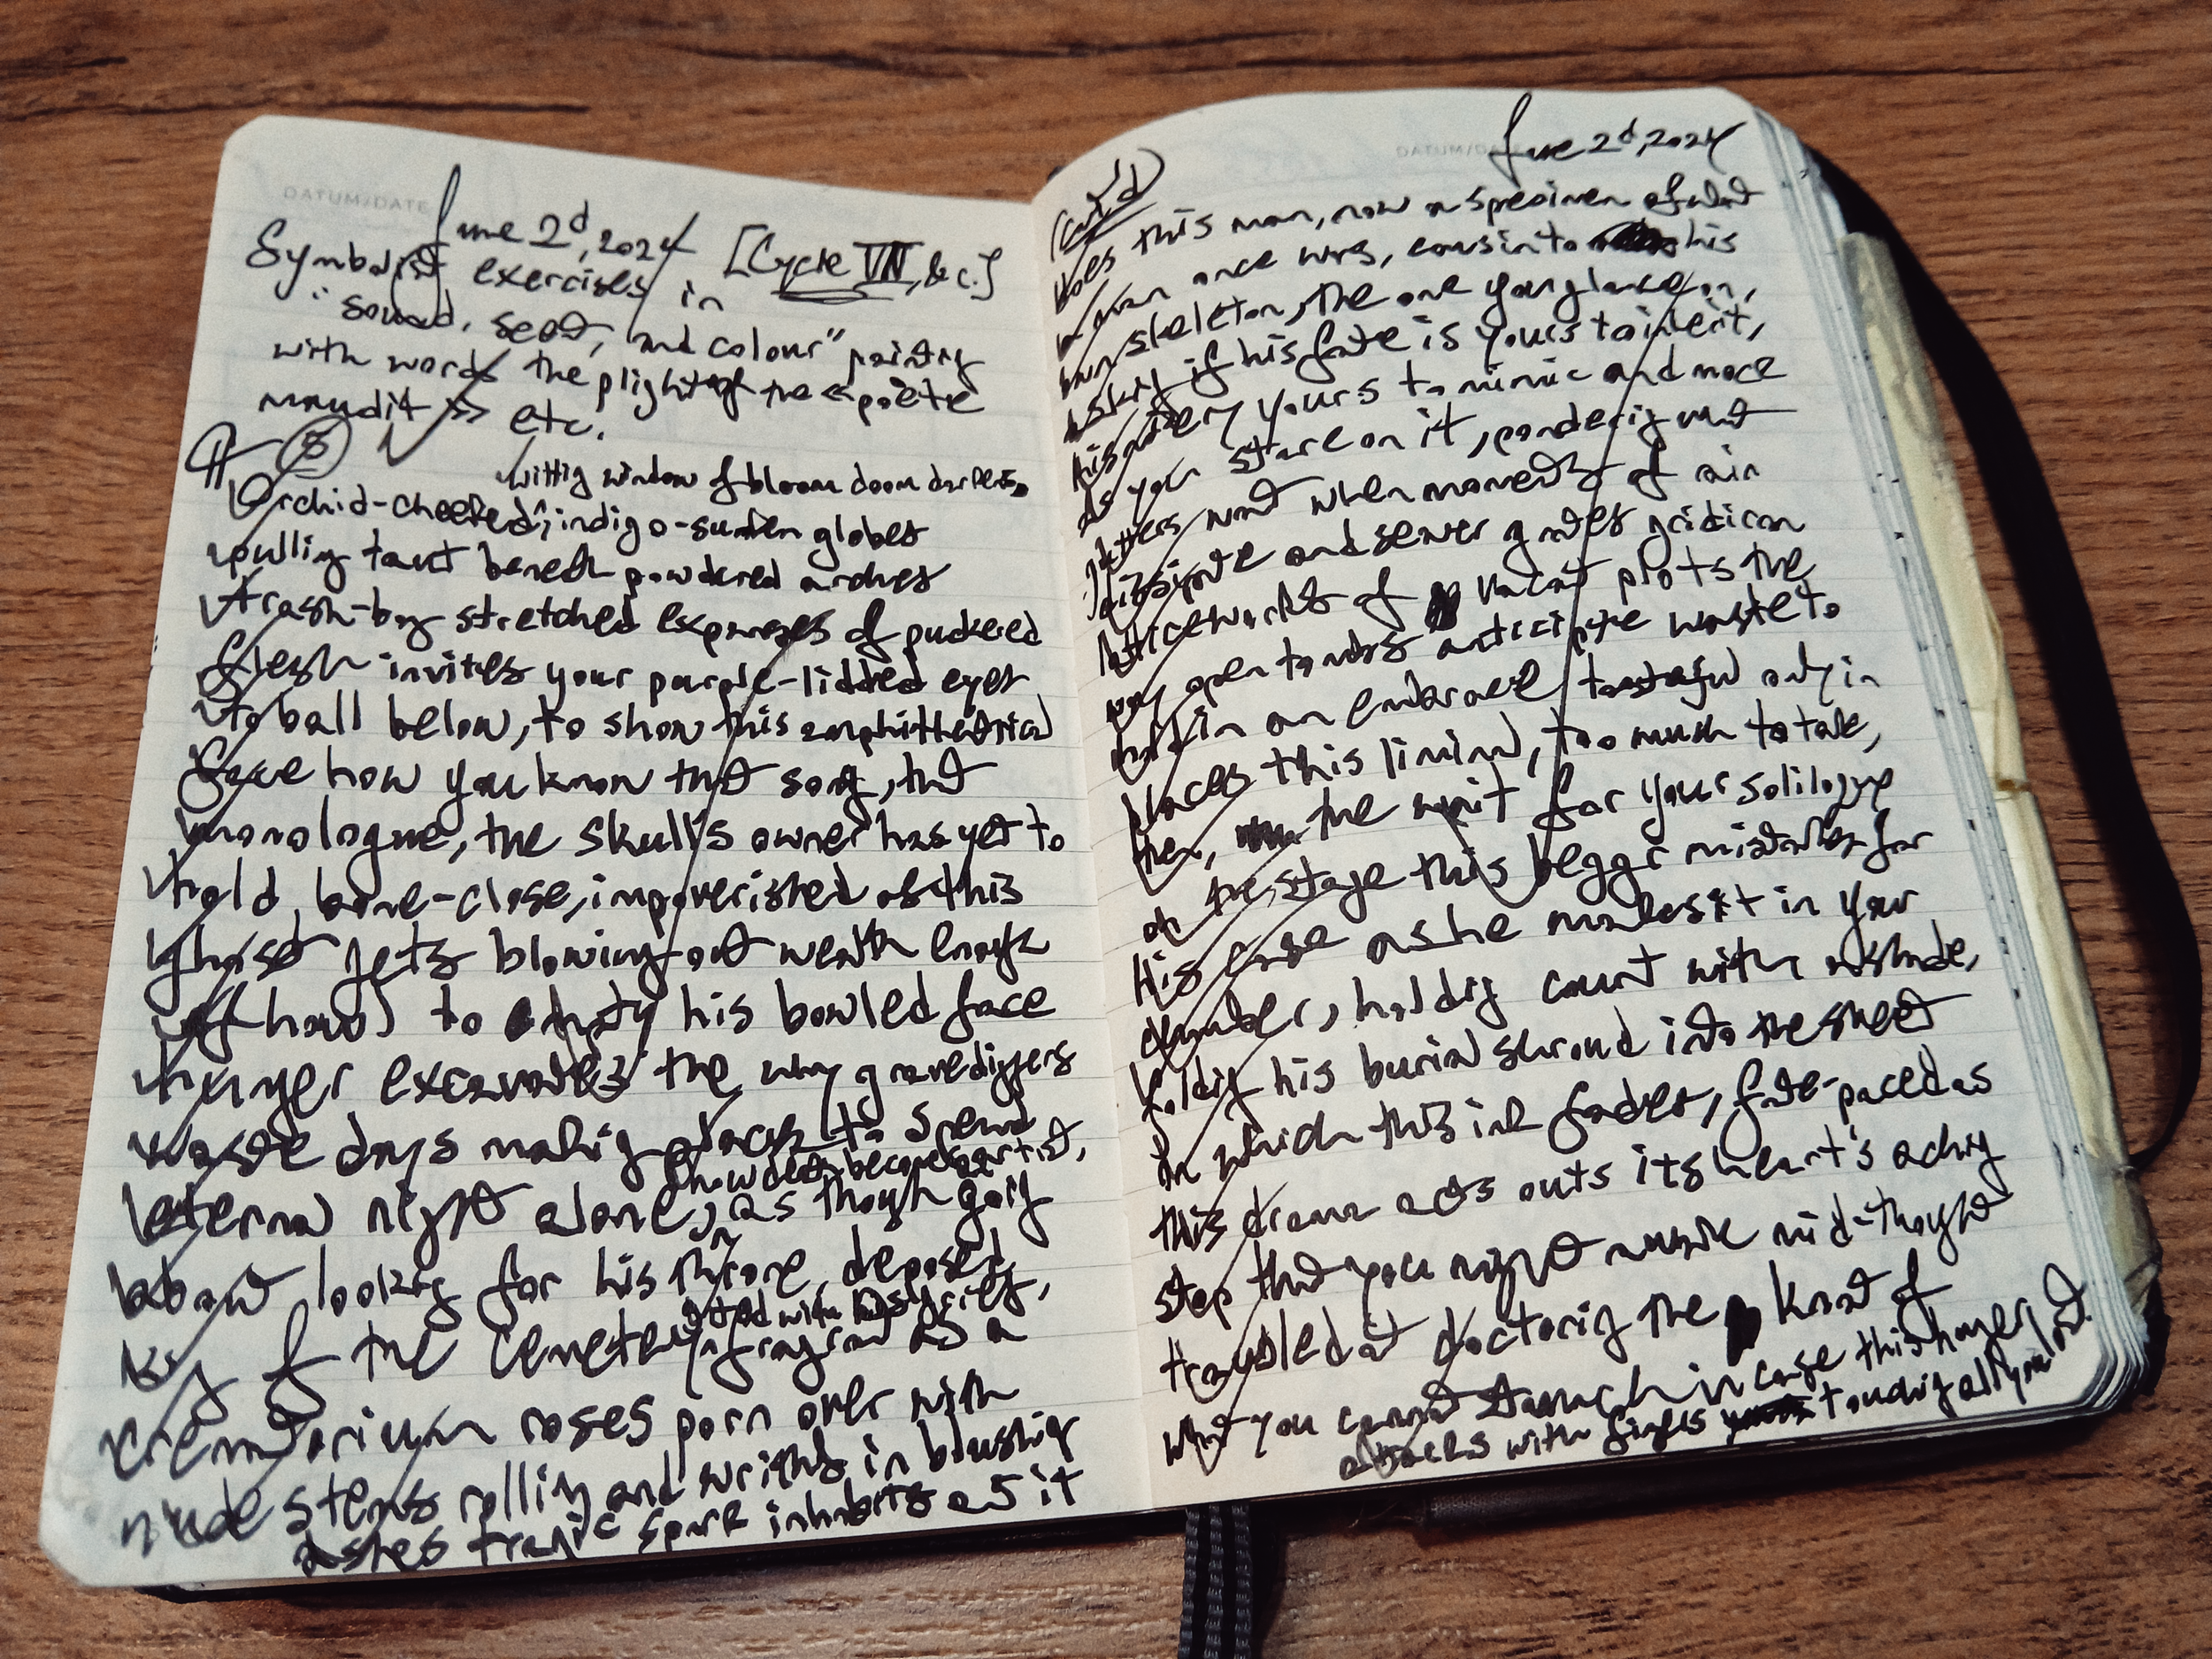 DATUM/DATE
June 2d, 2024
[Cycle VII, &c.]
Symbolist exercises in
"sound, scent, and colour" painting
with words the plight of the «poète
maudit» etc.
8
wilting window of bloom doom darkens,
Orchid-cheeked, indigo-sunken globes
pulling taut beneath powdered arches
trash-bag stretched expanses of puckered
flesh invites your purple-lidded eyes
to ball below, to show this amphitheatrical
face how you know that song, that
monologue, the skull's owner has yet to
hold, bone-close, impoverished as this
ghost jets blowing out wealth enough
to empty his bowled face
hunger excavates the why gravediggers
waste days making places to spend
eternal night alone, as though going
how death becomes artist,
about looking for his throne, deposed
king of the cemetery, fragrant as a
with his grief,
crematorium roses porn over with
nude stems rolling and writhing in blushing
ashes tragic spark inhabits as it
DATUM/DATE
June 2d, 2024
(cont'd)
does this man, now a specimen of what
a man once was, cousin to his
own skeleton, the one you glance on,
asking if his fate is yours to inherit,
his artery yours to mimic and more
as you stare on it, pondering what
matters most when moments of rain
dissipate and sewer grates gridiron
latticeworks of vacant plots the
way open tombs anticipate waste to
hold in an embrace tasteful only in
places this liminal, too much to take,
then, the wait for your soliloquy
on the stage this beggar mistakes for
his cage as he makes it in your
chamber, holding court with a shade,
folding his burial shroud into the sheet
in which this ink fades, fate-paced as
this drama acts outs its heart's aching
step that you might awake mid-thought
troubled at doctoring the knot of
what you cannot stomach in case this hunger
attacks with fingers touching all you lost.